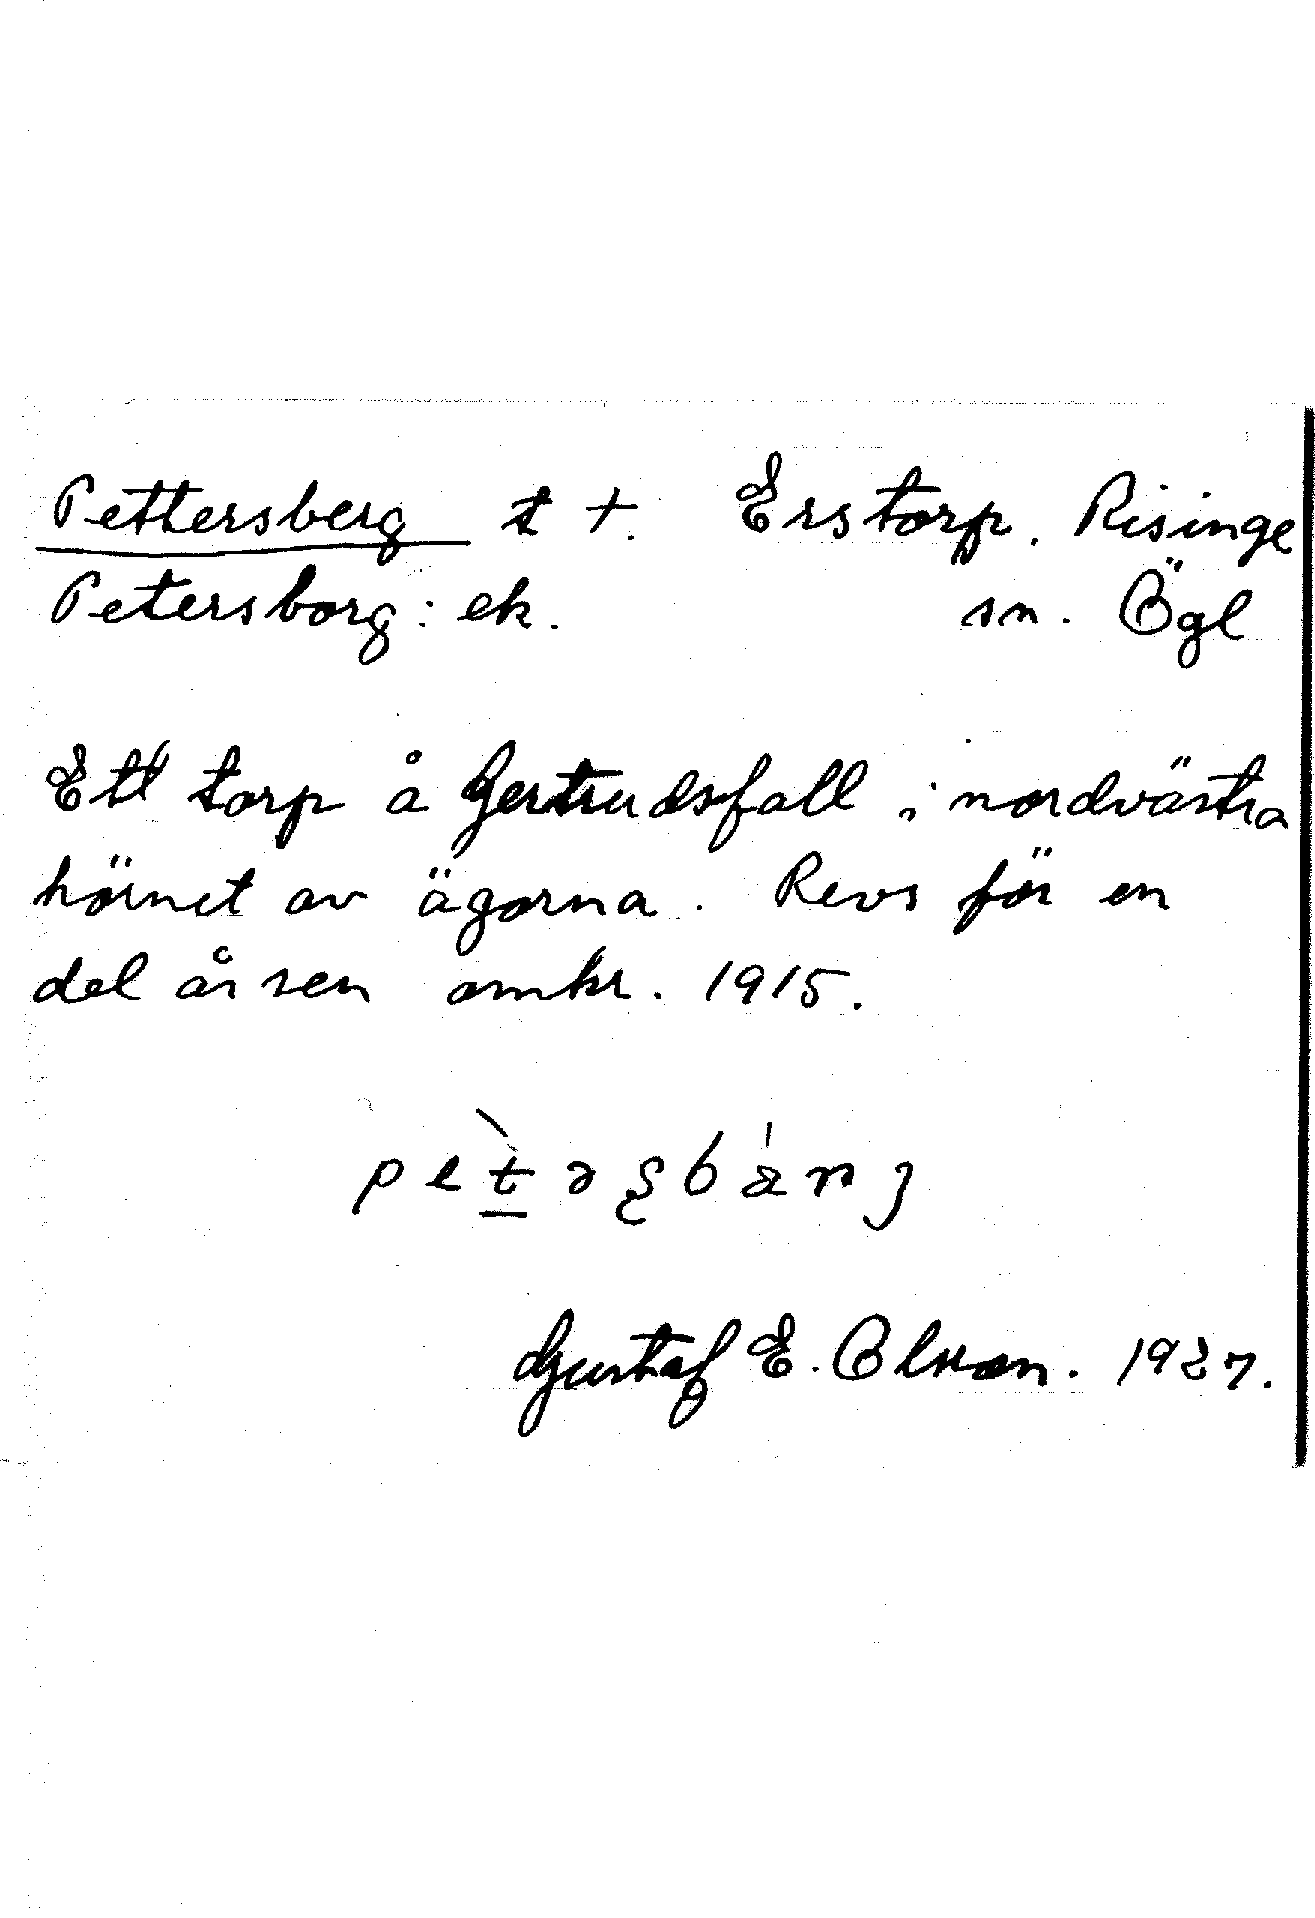 Pettersberg t +. Erstorp. Risinge
Petersborg: ek. sn. Ögl
Ett torp å Gertrudsfall i nordvästra
hörnet av ägorna. Revs för en
del år sen omkr. 1915.
Gustaf E. Olson. 1927.